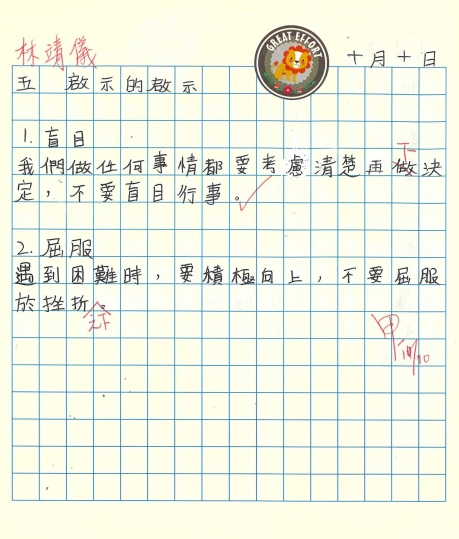 林靖儀
GREAT EFFORT
十月十日
五 啟示的啟示
1. 盲目
我們做任何事情都要考慮清楚再做決
下
定，不要盲目行事。
2. 屈服
遇到困難時，要積極向上，不要屈服
於挫折。
甲